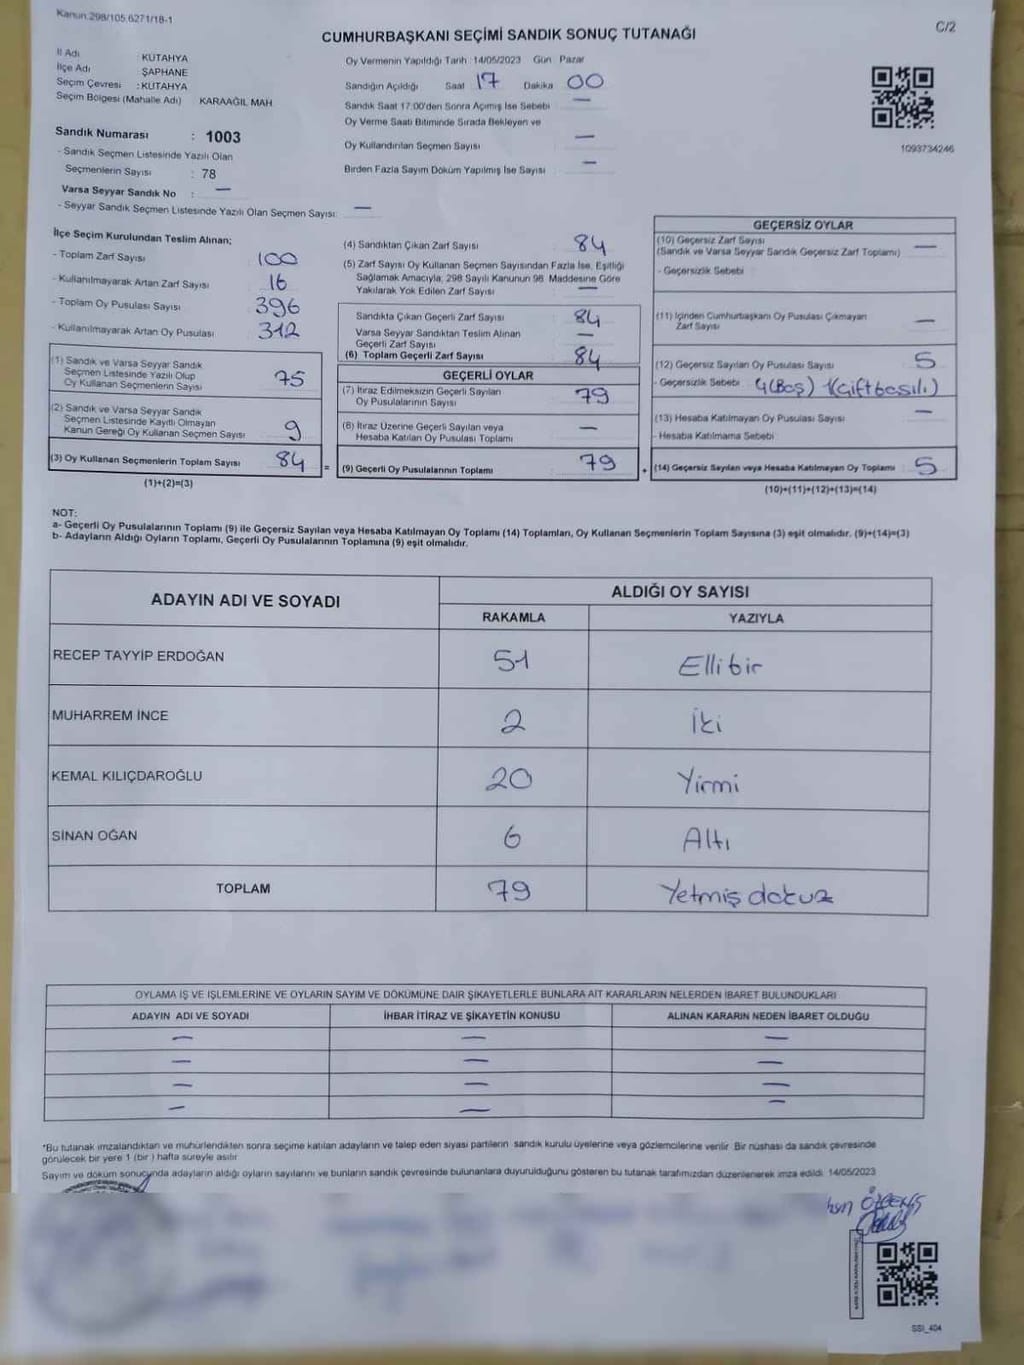 Kanun:298/105,6271/18-1
C/2
CUMHURBAŞKANI SEÇİMİ SANDIK SONUÇ TUTANAĞI
İl Adı : KÜTAHYA
İlçe Adı ŞAPHANE
Seçim Çevresi : KÜTAHYA
Seçim Bölgesi (Mahalle Adı) KARAAĞIL MAH
Sandık Numarası : 1003
- Sandık Seçmen Listesinde Yazılı Olan
Seçmenlerin Sayısı : 78
Varsa Seyyar Sandık No : —
- Seyyar Sandık Seçmen Listesinde Yazılı Olan Seçmen Sayısı: —
Oy Vermenin Yapıldığı Tarih 14/05/2023 Gün Pazar
Sandığın Açıldığı Saat 17 Dakika 00
Sandık Saat 17:00'den Sonra Açımış İse Sebebi —
Oy Verme Saati Bitiminde Sırada Bekleyen ve
Oy Kullandırılan Seçmen Sayısı —
Birden Fazla Sayım Döküm Yapılmış İse Sayısı —
1093734246
İlçe Seçim Kurulundan Teslim Alınan;
- Toplam Zarf Sayısı 100
- Kullanılmayarak Artan Zarf Sayısı 16
- Toplam Oy Pusulası Sayısı 396
- Kullanılmayarak Artan Oy Pusulası 312
(1) Sandık ve Varsa Seyyar Sandık
Seçmen Listesinde Yazılı Olup
Oy Kullanan Seçmenlerin Sayısı 75
(2) Sandık ve Varsa Seyyar Sandık
Seçmen Listesinde Kayıtlı Olmayan
Kanun Gereği Oy Kullanan Seçmen Sayısı 9
(3) Oy Kullanan Seçmenlerin Toplam Sayısı 84 =
(1)+(2)=(3)
(4) Sandıktan Çıkan Zarf Sayısı 84
(5) Zarf Sayısı Oy Kullanan Seçmen Sayısından Fazla İse, Eşitliği
Sağlamak Amacıyla; 298 Sayılı Kanunun 98. Maddesine Göre
Yakılarak Yok Edilen Zarf Sayısı —
Sandıkta Çıkan Geçerli Zarf Sayısı 84
Varsa Seyyar Sandıktan Teslim Alınan
Geçerli Zarf Sayısı —
(6) Toplam Geçerli Zarf Sayısı 84
GEÇERLİ OYLAR
(7) İtiraz Edilmeksizin Geçerli Sayılan
Oy Pusulalarının Sayısı 79
(8) İtiraz Üzerine Geçerli Sayılan veya
Hesaba Katılan Oy Pusulası Toplamı —
(9) Geçerli Oy Pusulalarının Toplamı 79 +
GEÇERSİZ OYLAR
(10) Geçersiz Zarf Sayısı
(Sandık ve Varsa Seyyar Sandık Geçersiz Zarf Toplamı) —
- Geçersizlik Sebebi
(11) İçinden Cumhurbaşkanı Oy Pusulası Çıkmayan
Zarf Sayısı —
(12) Geçersiz Sayılan Oy Pusulası Sayısı 5
- Geçersizlik Sebebi 4(Boş) 1(Çift basılı)
(13) Hesaba Katılmayan Oy Pusulası Sayısı —
- Hesaba Katılmama Sebebi
(14) Geçersiz Sayılan veya Hesaba Katılmayan Oy Toplamı 5
(10)+(11)+(12)+(13)=(14)
NOT:
a- Geçerli Oy Pusulalarının Toplamı (9) ile Geçersiz Sayılan veya Hesaba Katılmayan Oy Toplamı (14) Toplamları, Oy Kullanan Seçmenlerin Toplam Sayısına (3) eşit olmalıdır. (9)+(14)=(3)
b- Adayların Aldığı Oyların Toplamı, Geçerli Oy Pusulalarının Toplamına (9) eşit olmalıdır.
ADAYIN ADI VE SOYADI ALDIĞI OY SAYISI
RAKAMLA YAZIYLA
RECEP TAYYİP ERDOĞAN 51 Ellibir
MUHARREM İNCE 2 İki
KEMAL KILIÇDAROĞLU 20 Yirmi
SİNAN OĞAN 6 Altı
TOPLAM 79 Yetmiş dokuz
OYLAMA İŞ VE İŞLEMLERİNE VE OYLARIN SAYIM VE DÖKÜMÜNE DAİR ŞİKAYETLERLE BUNLARA AİT KARARLARIN NELERDEN İBARET BULUNDUKLARI
ADAYIN ADI VE SOYADI İHBAR İTİRAZ VE ŞİKAYETİN KONUSU ALINAN KARARIN NEDEN İBARET OLDUĞU
— — —
— — —
— — —
— — —
*Bu tutanak imzalandıktan ve mühürlendikten sonra seçime katılan adayların ve talep eden siyasi partilerin sandık kurulu üyelerine veya gözlemcilerine verilir. Bir nüshası da sandık çevresinde
görülecek bir yere 1 (bir) hafta süreyle asılır.
Sayım ve döküm sonucunda adayların aldığı oyların sayılarını ve bunların sandık çevresinde bulunanlara duyurulduğunu gösteren bu tutanak tarafımızdan düzenlenerek imza edildi. 14/05/2023
SSI_404